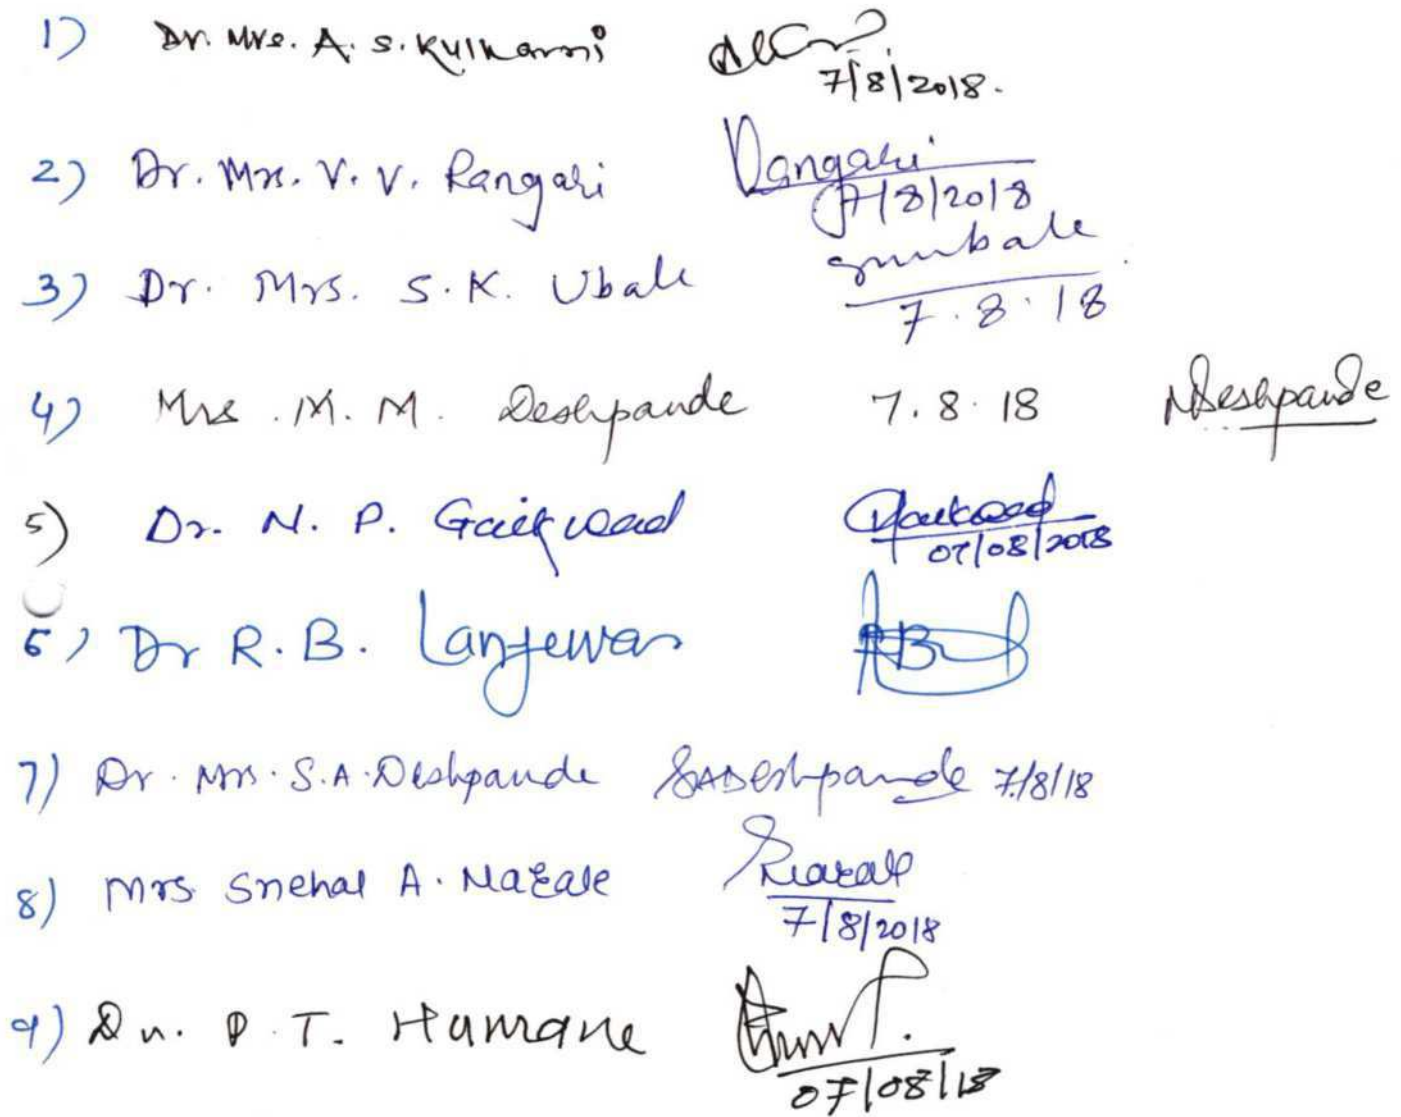 1) Dr. Mrs. A. S. Kulkarni
7/8/2018.
2) Dr. Mrs. V. V. Rangari Rangari
7/8/2018
3) Dr. Mrs. S. K. Ubale
7.8.18
4) Mrs. M. M. Deshpande 7.8.18 MDeshpande
5) Dr. N. P. Gaikwad Gaikwad
07/08/2018
6) Dr R. B. Lanjewar
7) Dr. Mrs. S.A. Deshpande SADeshpande 7/8/18
8) Mrs Snehal A. Nazale
7/8/2018
9) Dr. P. T. Humane
07/08/18